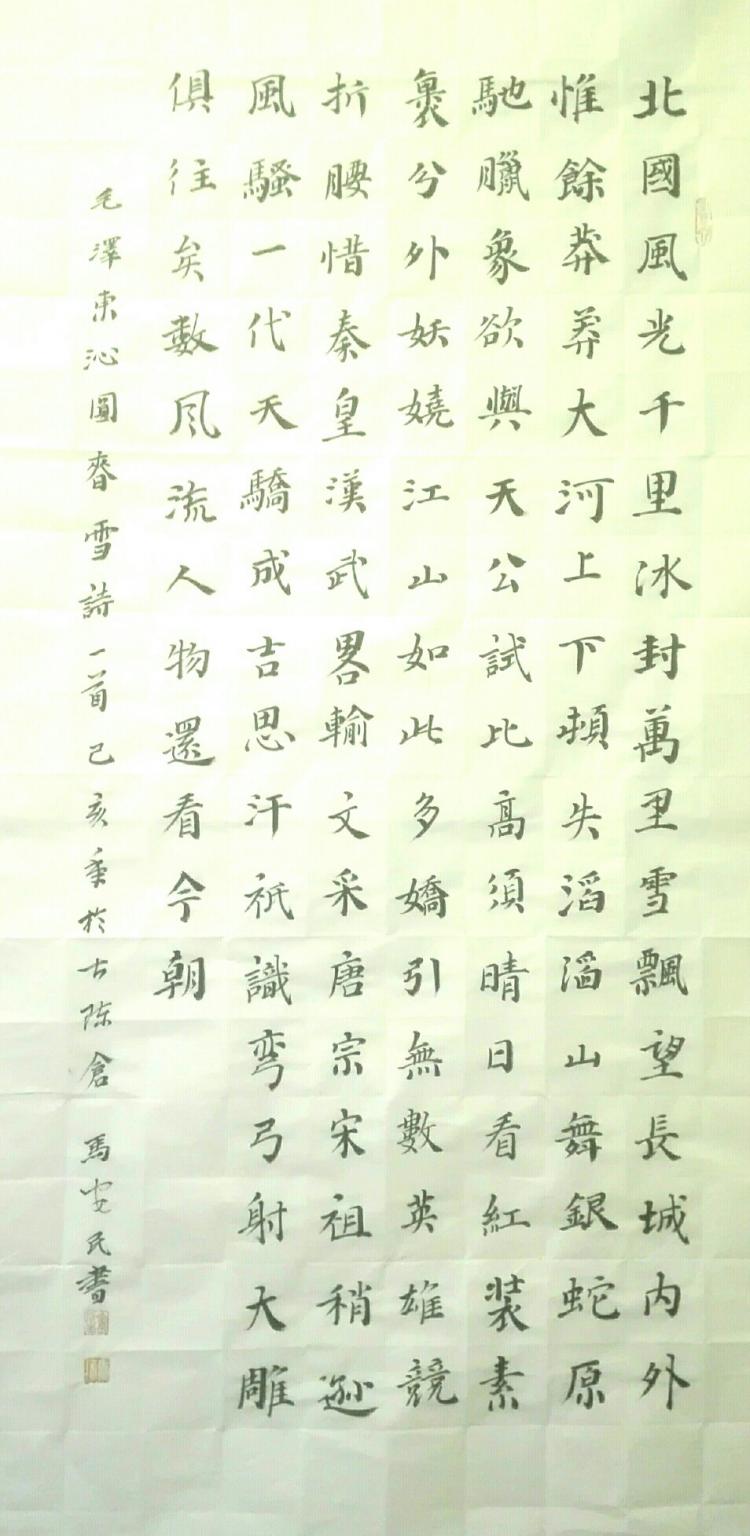 北國風光千里冰封萬里雪飄望長城内外
惟餘莽莽大河上下頓失滔滔山舞銀蛇原
馳臘象欲與天公試比高須晴日看紅装素
裹兮外妖嬈江山如此多嬌引無數英雄競
折腰惜秦皇漢武畧輸文采唐宗宋祖稍遜
風騷一代天驕成吉思汗祇識弯弓射大雕
俱往矣數风流人物還看今朝
毛澤東沁園春雪詩一首己亥年於古陈倉馬安民書